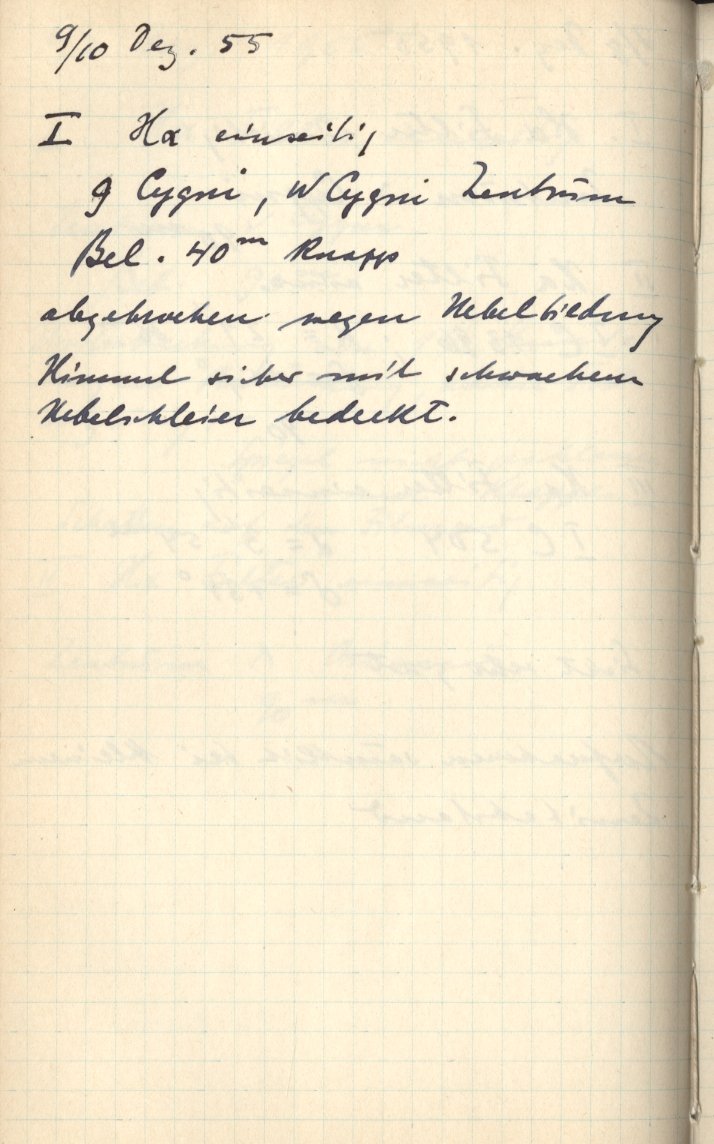 9/10 Dez. 55
I Hα einseitig
g Cygni, W Cygni Zentrum
Bel. 40ᵐ knapp
abgebrochen wegen Nebelbildung
Himmel sicher mit schwachem
Nebelschleier bedeckt.